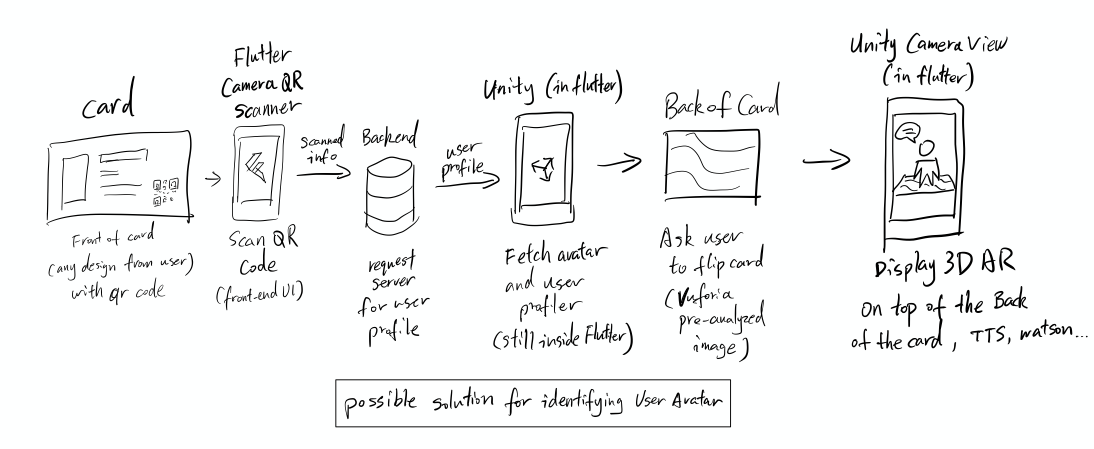 card
Front of card
(any design from user)
with qr code
Flutter
Camera QR
scanner
scan QR
Code
(front-end UI)
scanned
info
Backend
request
server
for user
profile
user
profile
Unity (in flutter)
Fetch avatar
and user
profiler
(still inside Flutter)
Back of Card
Ask user
to flip card
(Vuforia
pre-analyzed
image)
Unity Camera View
(in flutter)
Display 3D AR
on top of the Back
of the card, TTS, watson...
possible solution for identifying User Avatar